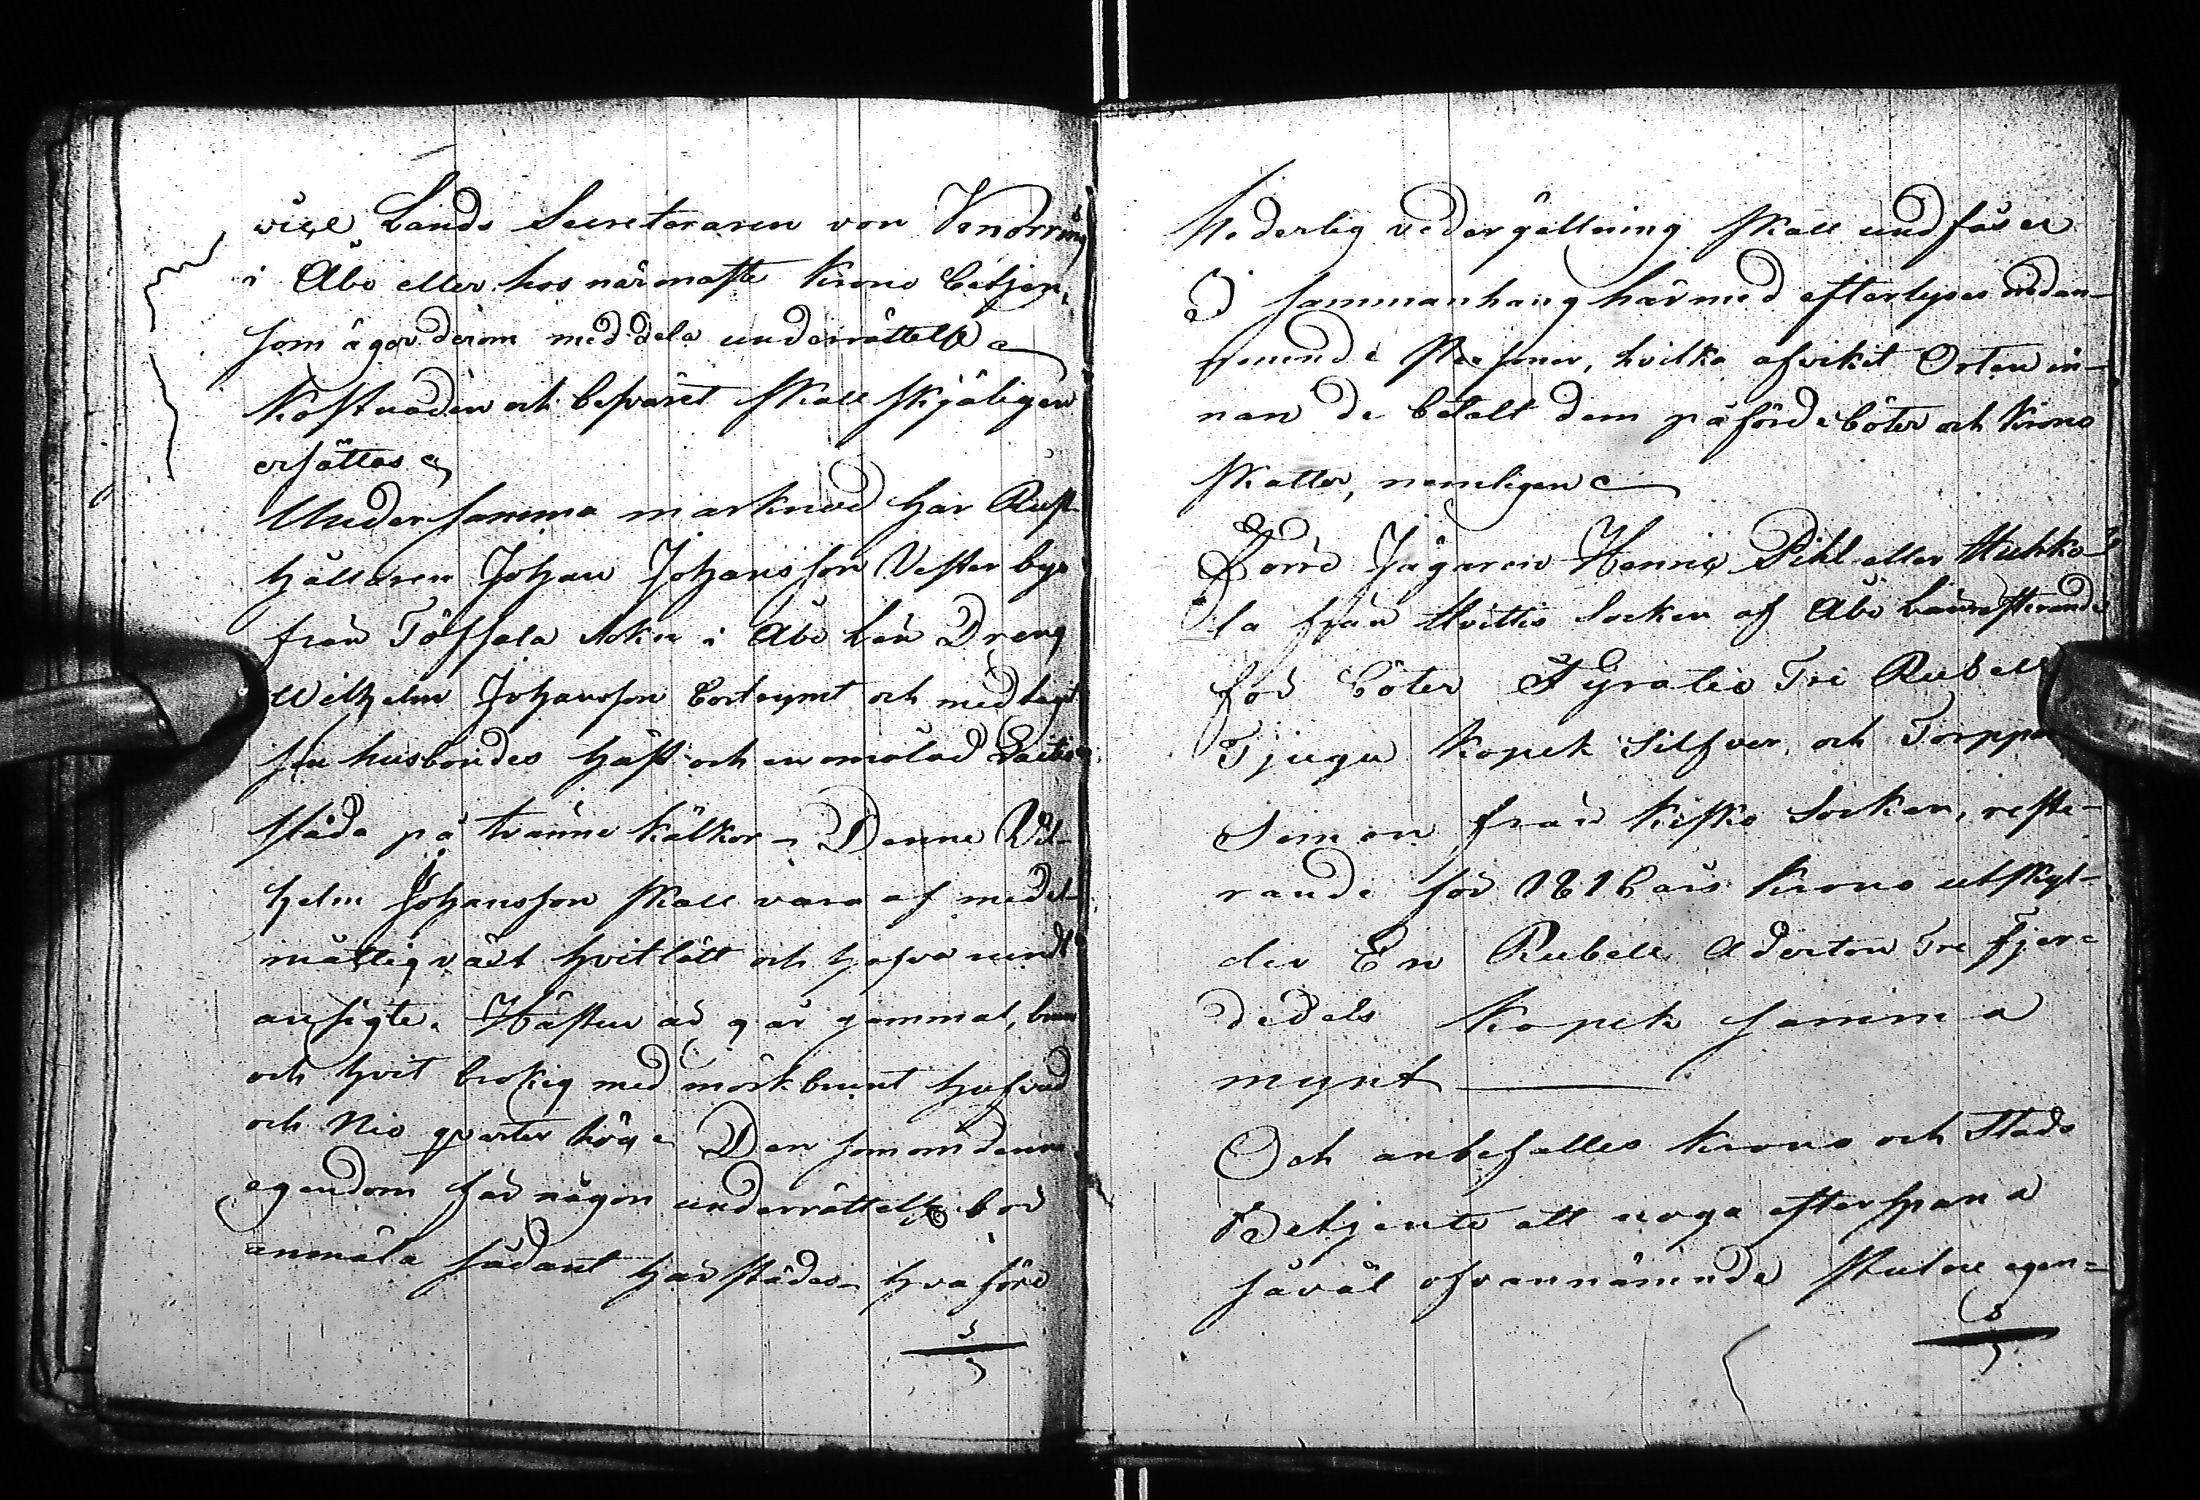 vice Lands Secreteraren von Knorring
i Åbo eller hos närmaste Krono betjen,
som äger derom meddela underrättelse
Kostnaden och besväret skall skjäligen
ersättas
Under samma marknad har Rust-
hållaren Johan Johansson Vesterbys
från Töfsala Sokn i Åbo Län Dreng
Wilhelm Johansson bortrymt och medtagit
sin husbondes häst och en omålad
släda på tvänne kälkor Denne Vil-
helm Johansson skall vara af medel-
måttig växt hvitlätt och hafva rundt
ansigte. Hästen är 9 år gammal, brun
och hvit brokig med mörkbrunt hufvud
och Nio qvarter hög Den som om denna
egendom får någon underrättelse bör
anmäla sådant härstädes hvaföre
hederlig vedergällning skall undfås
I sammanhang härmed efterlyses nedan-
nämnde Personer, hvilka afvikit Orten in-
nan de betalt dem påförde böter och Krono
skatter, nemligen
Förre Jägaren Henric Pihl eller Huhka-
la från Hvittis Socken af Åbo Län resterande
för böter Fyratio Tre Rubel
Tjugu Kopek Silfver, och Torppa
Simon från Kisko Socken, reste-
rande för 1818 års Krono utskyl-
der En Rubel Aderton Tre fjer-
dedels Kopek samma
mynt
Och anbefalles Krono och Stads
Betjente att noga efterspana
såväl ofvannämnde stulne egen-